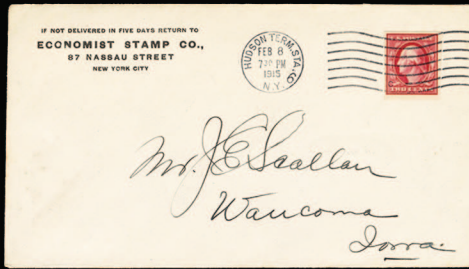 IF NOT DELIVERED IN FIVE DAYS RETURN TO
ECONOMIST STAMP CO.,
87 NASSAU STREET
NEW YORK CITY
HUDSON TERM. STA.
FEB 8
7 PM
1915
N.Y.
Mr. J E Scallan
Waucoma
Iowa.